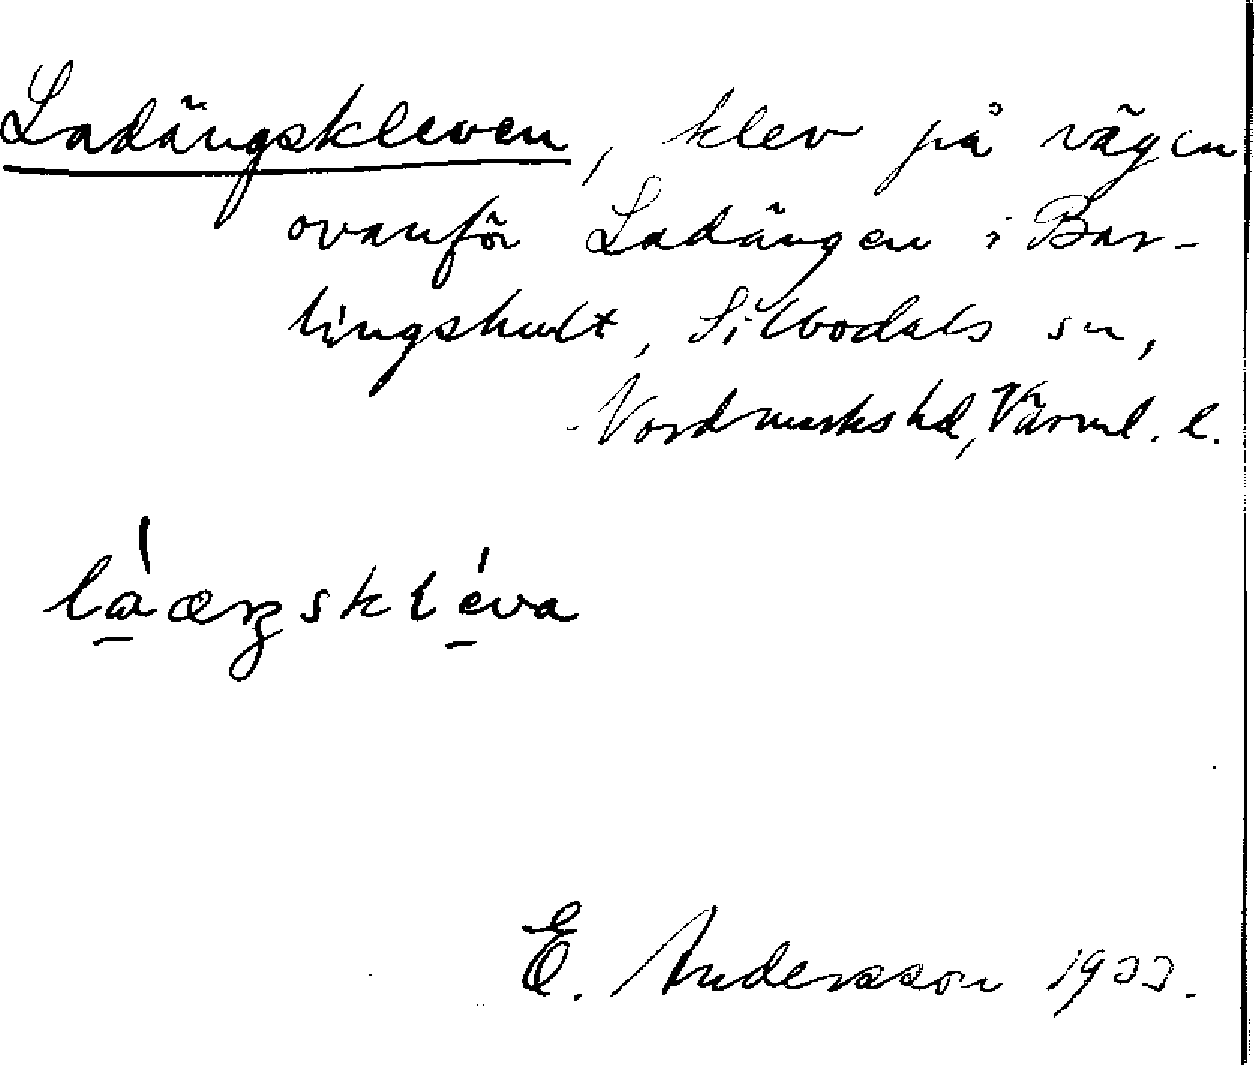 Ladängskleven, klev på vägen
ovanför Ladängen i Bar-
lingshult, Silbodals sn,
Nordmarks hd, Värml. l.
E. Andersson 1933.